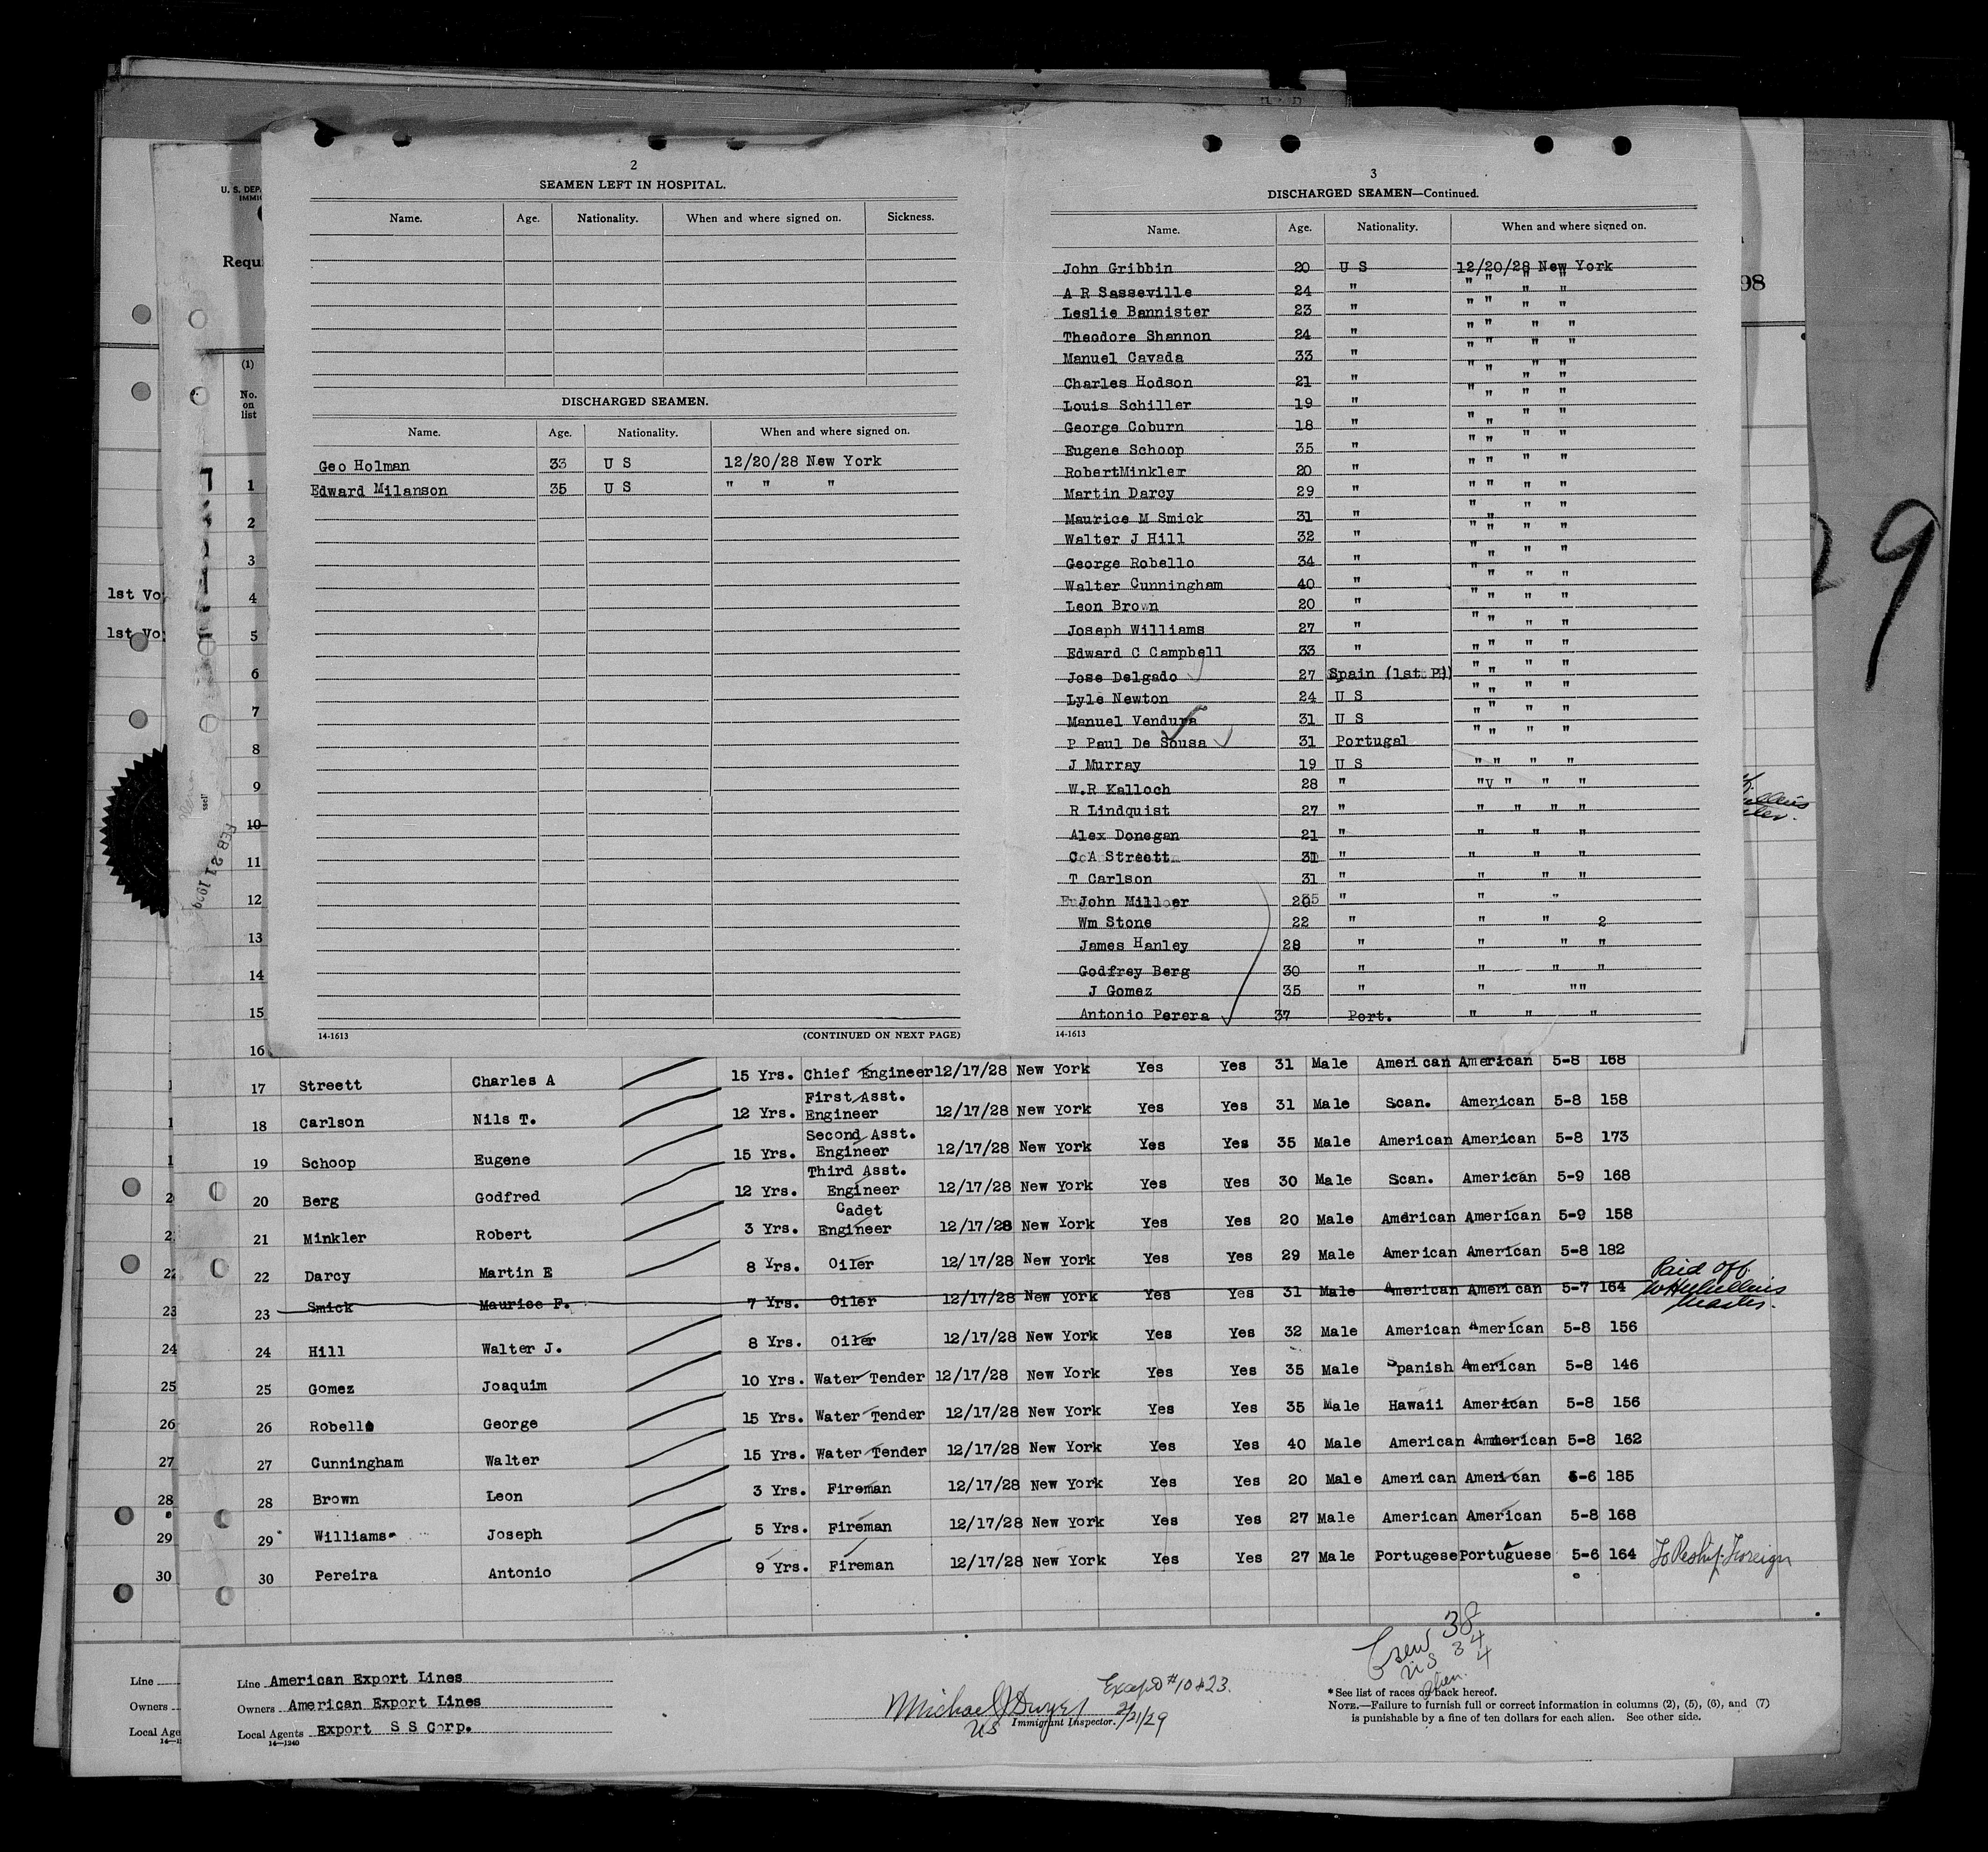 2
SEAMEN LEFT IN HOSPITAL.
Name. Age. Nationality. When and where signed on. Sickness.
DISCHARGED SEAMEN.
Name. Age. Nationality. When and where signed on.
Geo Holman 33 U S 12/20/28 New York
Edward Milanson 35 U S " " "
14-1613 (CONTINUED ON NEXT PAGE)
3
DISCHARGED SEAMEN—Continued.
Name. Age. Nationality. When and where signed on.
John Gribbin 20 U S 12/20/28 New York
A R Sasseville 24 " " " " "
Leslie Bannister 23 " " " " "
Theodore Shannon 24 " " " " "
Manuel Cavada 33 " " " " "
Charles Hodson 21 " " " " "
Louis Schiller 19 " " " " "
George Coburn 18 " " " " "
Eugene Schoop 35 " " " " "
RobertMinkler 20 " " " " "
Martin Darcy 29 " " " " "
Maurice M Smick 31 " " " " "
Walter J Hill 32 " " " " "
George Robello 34 " " " " "
Walter Cunningham 40 " " " " "
Leon Brown 20 " " " " "
Joseph Williams 27 " " " " "
Edward C Campbell 33 " " " " "
Jose Delgado 27 Spain (1st P) " " " "
Lyle Newton 24 U S " " " "
Manuel Vendura 31 U S " " " "
P Paul De Sousa 31 Portugal " " " "
J Murray 19 U S " " " "
W.R Kalloch 28 " "v " " "
R Lindquist 27 " " " " "
Alex Donegan 21 " " " "
C A Streett 31 " " " "
T Carlson 31 " " " "
John Miller 20 " " "
Wm Stone 22 " " " 2
James Hanley 28 " " " "
Godfrey Berg 30 " " " "
J Gomez 35 " " ""
Antonio Perera 37 Port. " " "
14-1613
U. S. DEP
IMMIG
Requi
(1)
No.
on
list
98
29
1st Vo
1st Vo
FEB 21 1929
1
2
3
4
5
6
7
8
9
10
11
12
13
14
15
16 31 Male American American 5-8 168
17 Streett Charles A 15 Yrs. Chief Engineer 12/17/28 New York Yes Yes 31 Male American American 5-8 168
18 Carlson Nils T. 12 Yrs. First Asst. Engineer 12/17/28 New York Yes Yes 31 Male Scan. American 5-8 158
19 Schoop Eugene 15 Yrs. Second Asst. Engineer 12/17/28 New York Yes Yes 35 Male American American 5-8 173
20 Berg Godfred 12 Yrs. Third Asst. Engineer 12/17/28 New York Yes Yes 30 Male Scan. American 5-9 168
21 Minkler Robert 3 Yrs. Cadet Engineer 12/17/28 New York Yes Yes 20 Male American American 5-9 158
22 Darcy Martin E 8 Yrs. Oiler 12/17/28 New York Yes Yes 29 Male American American 5-8 182
23 Smick Maurice P. 7 Yrs. Oiler 12/17/28 New York Yes Yes 31 Male American American 5-7 164 Paid off. Master.
24 Hill Walter J. 8 Yrs. Oiler 12/17/28 New York Yes Yes 32 Male American American 5-8 156
25 Gomez Joaquim 10 Yrs. Water Tender 12/17/28 New York Yes Yes 35 Male Spanish American 5-8 146
26 Robello George 15 Yrs. Water Tender 12/17/28 New York Yes Yes 35 Male Hawaii American 5-8 156
27 Cunningham Walter 15 Yrs. Water Tender 12/17/28 New York Yes Yes 40 Male American Ammerican 5-8 162
28 Brown Leon 3 Yrs. Fireman 12/17/28 New York Yes Yes 20 Male American American 5-6 185
29 Williams Joseph 5 Yrs. Fireman 12/17/28 New York Yes Yes 27 Male American American 5-8 168
30 Pereira Antonio 9 Yrs. Fireman 12/17/28 New York Yes Yes 27 Male Portugese Portuguese 5-6 164 To Reship Foreign
22
23
24
25
26
27
28
29
30
Line
Owners
Local Age
Line American Export Lines
Owners American Export Lines
Local Agents Export S S Corp.
14—1240
Michael J Dwyer
US Immigrant Inspector.
Except #10 & 23.
2/21/29
Crew 38
US 34
alien 4
* See list of races on back hereof.
NOTE.—Failure to furnish full or correct information in columns (2), (5), (6), and (7)
is punishable by a fine of ten dollars for each alien. See other side.